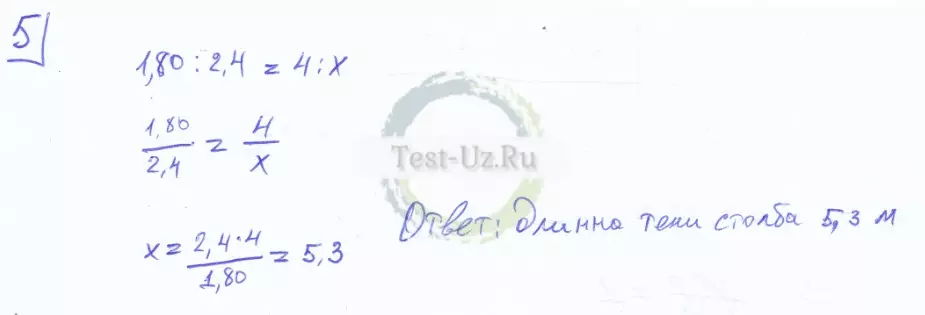 5
1,80 : 2,4 = 4 : x
1,80 / 2,4 = 4 / x
Test-Uz.Ru
x = 2,4 · 4 / 1,80 = 5,3
Ответ: длинна тени столба 5,3 м